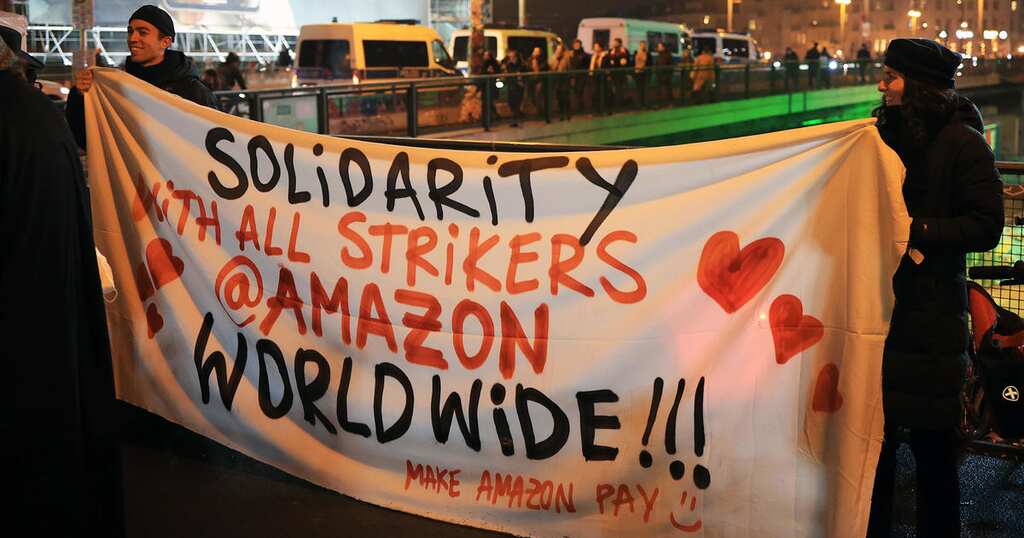 SOLiDARiTY
WiTH ALL STRiKERS
@AMAZON
WORLDWiDE!!!
MAKE AMAZON PAY :)